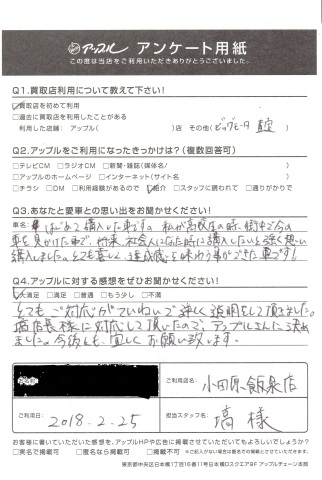 アップル アンケート用紙
この度は当店をご利用いただきありがとうございました。
Q1.買取店利用について教えて下さい!
買取店を初めて利用
□過去に買取店を利用したことがある
利用した店舗: アップル( )店 その他(ビッグモータ 査定)
Q2.アップルをご利用になったきっかけは?(複数回答可)
□テレビCM □ラジオCM □新聞・雑誌(媒体名/ )
□アップルのホームページ □インターネット(サイト名 )
□チラシ □DM □利用経験があるので 紹介 □スタッフに誘われて □通りがかりで
Q3.あなたと愛車との思い出をお聞かせください!
車名: はじめて購入した車です。私が高校生の時、街中で今の
車を見かけた車で、将来、社会人になった時に購入したいと強く想い
購入しました。とても嬉しく、達成感を味わう事ができた車です!
Q4.アップルに対する感想をぜひお聞かせください!
大満足 □満足 □普通 □もう少し □不満
とてもご対応がていねいで詳しく説明をして頂きました。
塙店長様に対応して頂いたので、アップルさんに決め
ました。今後とも、宜しくお願い致します。
ご利用店名: 小田原飯泉店
ご利用日: 2018.2.25
担当スタッフ名: 塙様
お客様に書いていただいた感想を、アップルHPや広告に掲載させていただいてもよろしいでしょうか?
□実名で掲載可 □匿名なら掲載可 □不可 ※ご記入がない場合は匿名での掲載とさせていただきます。
東京都中央区日本橋1丁目16番11号日本橋Dスクエア9F アップルチェーン本部